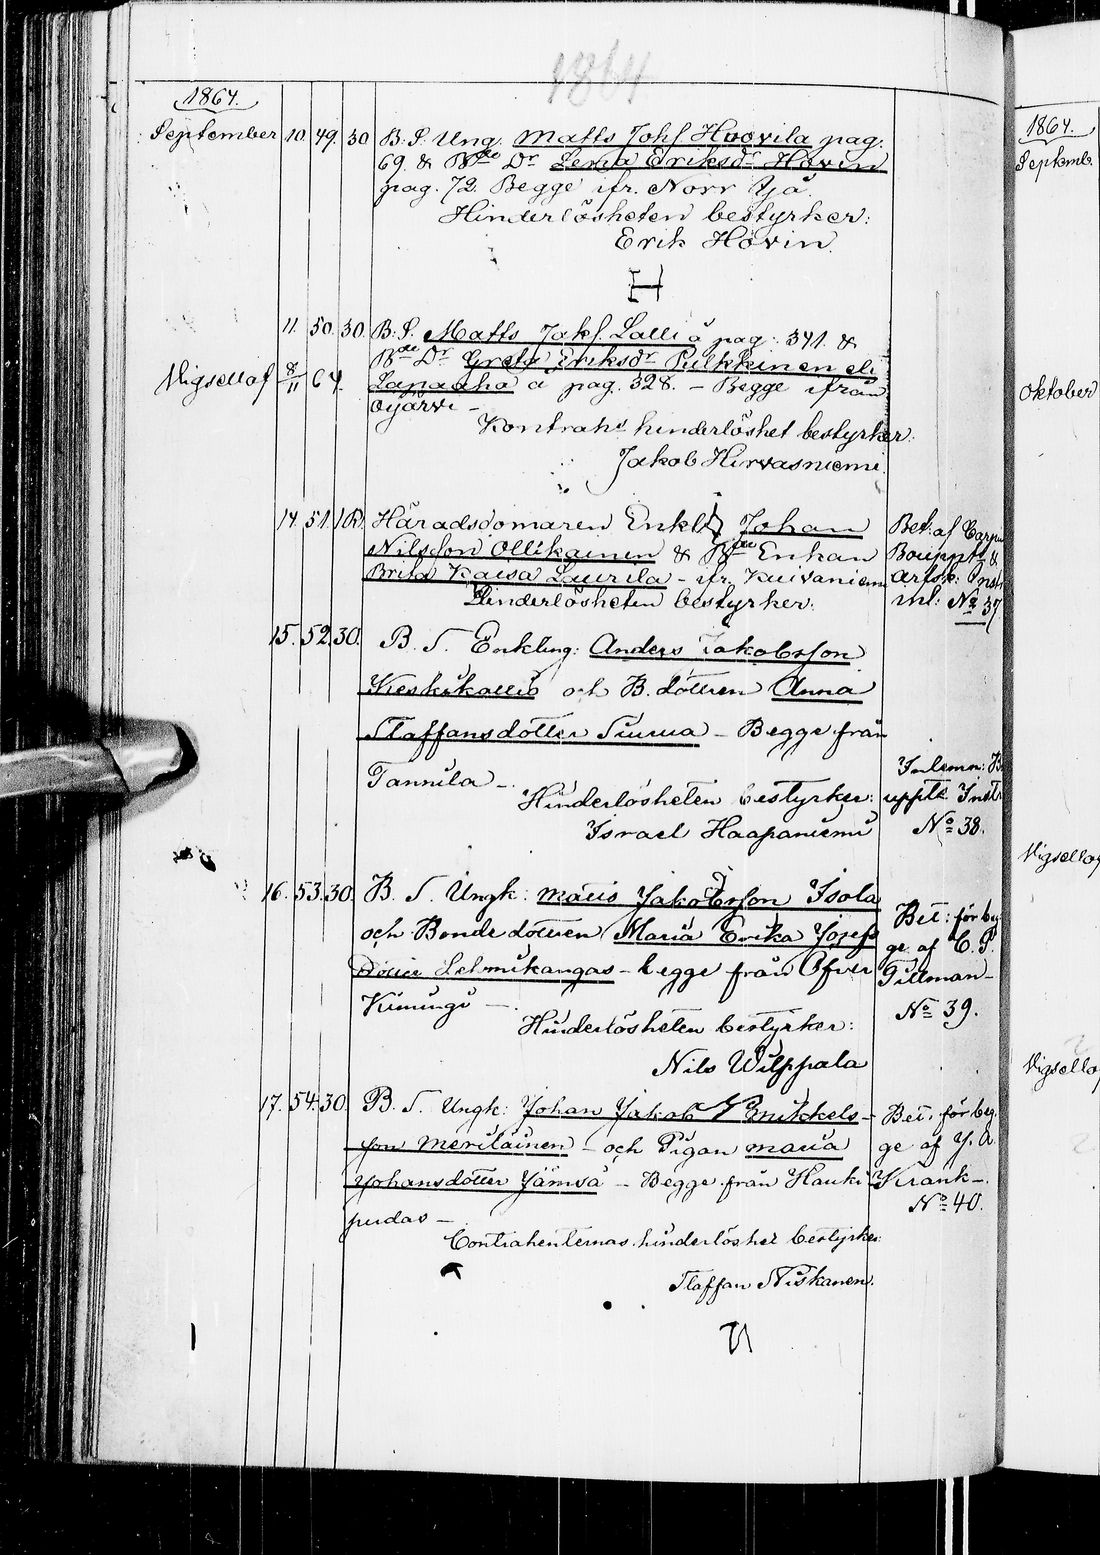 1864
1864.
September 10. 49. 30 B. S. Ung. Matts Johs Huovila pag.
69 & Bde Dr Lena Eriksdr Hövin
pag. 72. Begge ifr. Norr Ijå.
Hinderlösheten bestyrker:
Erik Hövin.
11. 50. 30. B. S. Matts Jaks. Lalli å pag: 341. &
Bde Dr Greta Eriksdr Pulkkinen eli
Vigsellaf 8/11 64. Lapaaho å pag. 328. – Begge ifrån
Oijärvi –
Kontrahs hinderlöshet bestyrker:
Jakob Hirvasniemi.
14. 51. Häradsdomaren Enkl. Johan
Nilsson Ollikainen & Bde Enkan
Brita Kaisa Laurila – ifr. Kuivaniemi
Hinderlösheten bestyrker:
Bet: af
Bouppt. &
Inl: No 37
15. 52. 30. B. S. Enkling: Anders Jakobsson
Keskikallio och B. dottren Anna
Staffansdotter Suma – Begge från
Tannila –
Hinderlösheten bestyrker:
Israel Haapaniemi
Inlemn:
uppt.
No 38.
16. 53. 30. B. S. Ungk: Matts Jakobsson Isola
och Bonde dottren Maria Erika Josefs
Dotter Lehmikangas – begge från Öfver
Kiimingi –
Hinderlösheten bestyrker:
Nils Wilppala
Bet: för beg
ge af C. P.
Tillman –
No 39.
17. 54. 30. B. S. Ungk: Johan Jakob Enikkels-
son Meriläinen – och Pigan Maria
Johansdotter Jämsä – Begge från Hauki
pudas –
Contrahenternas hinderlöshet bestyrker
Staffan Niskanen.
Bet: för beg
ge af J. A.
Krank –
No 40.
1864.
Septemb
Oktober
Vigsellaf
Vigsellaf